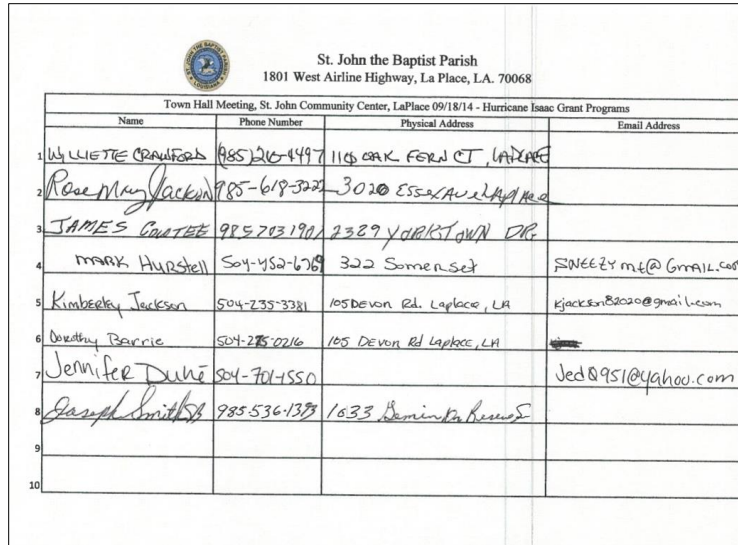 St. John the Baptist Parish
1801 West Airline Highway, La Place, LA. 70068
Town Hall Meeting, St. John Community Center, LaPlace 09/18/14 - Hurricane Isaac Grant Programs
Name Phone Number Physical Address Email Address
1 WYLLIETTE CRAWFORD OAK FERN CT, LAPLACE
2 Rose Mary Jackson 985-618-3222 3020 Essex Ave LaPlace
3 JAMES 985 703 1901 2329 YORKTOWN DR.
4 MARK Hurstell 504-452-6769 322 Somerset SWEEZYmt@GmAIL.com
5 Kimberley Jackson 504-235-3381 105 Devon Rd. Laplace, LA kjackson82020@gmail.com
6 Dorothy Barrie 105 Devon Rd Laplace, LA
7 Jennifer Duhé 504-701-1550 Jed0951@yahoo.com
8 Joseph Smith 985-536-1393 1633
9
10